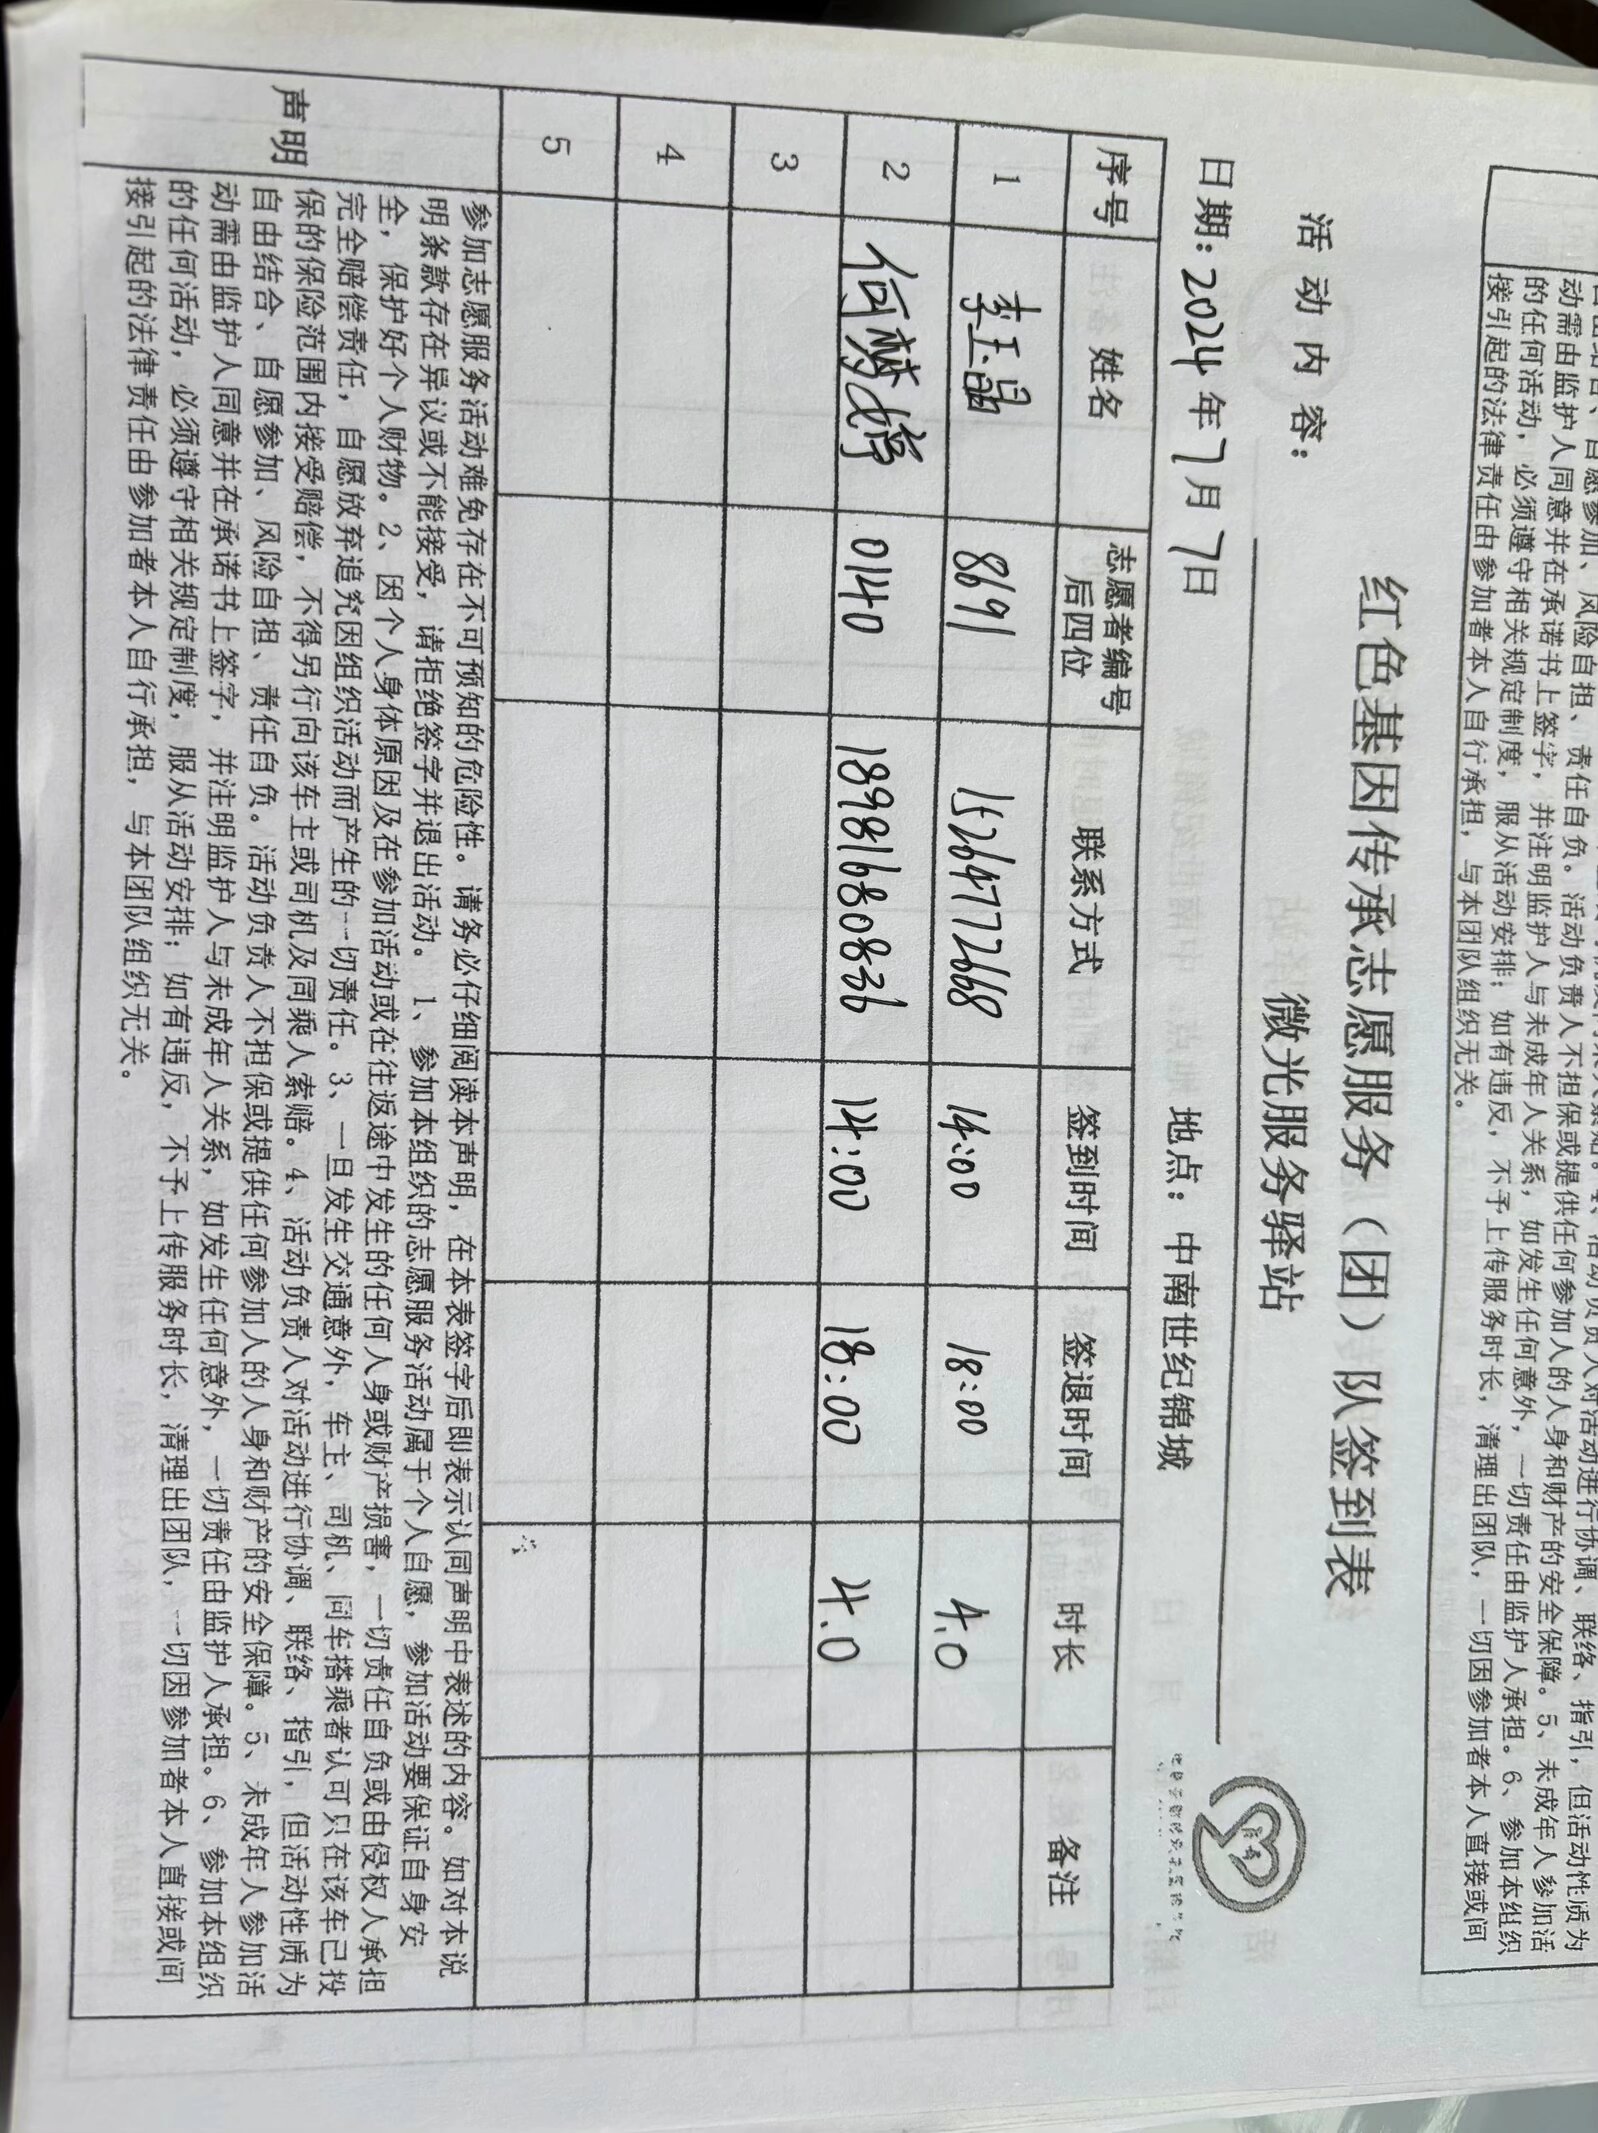 自由结合、自愿参加、风险自担、责任自负。活动负责人不担保或提供任何参加人的人身和财产的安全保障。5、未成年人参加活
动需由监护人同意并在承诺书上签字，并注明监护人与未成年人关系，如发生任何意外，一切责任由监护人承担。6、参加本组织
的任何活动，必须遵守相关规定制度，服从活动安排；如有违反，不予上传服务时长，清理出团队，一切因参加者本人直接或间
接引起的法律责任由参加者本人自行承担，与本团队组织无关。
红色基因传承志愿服务（团）队签到表
活动内容： 微光服务驿站
日期：2024年7月7日 地点：中南世纪锦城
序号 姓名 志愿者编号后四位 联系方式 签到时间 签退时间 时长 备注
1 李玉晶 8691 15264772668 14:00 18:00 4.0
2 何梦婷 0140 18981680836 14:00 18:00 4.0
3
4
5
声明
参加志愿服务活动难免存在不可预知的危险性。请务必仔细阅读本声明，在本表签字后即表示认同声明中表述的内容。如对本说
明条款存在异议或不能接受，请拒绝签字并退出活动。1、参加本组织的志愿服务活动属于个人自愿，参加活动要保证自身安
全，保护好个人财物。2、因个人身体原因及在参加活动或在往返途中发生的任何人身或财产损害，一切责任自负或由侵权人承担
完全赔偿责任，自愿放弃追究因组织活动而产生的一切责任。3、一旦发生交通意外，车主、司机、同车搭乘者认可只在该车已投
保的保险范围内接受赔偿，不得另行向该车主或司机及同乘人索赔。4、活动负责人对活动进行协调、联络、指引，但活动性质为
自由结合、自愿参加、风险自担、责任自负。活动负责人不担保或提供任何参加人的人身和财产的安全保障。5、未成年人参加活
动需由监护人同意并在承诺书上签字，并注明监护人与未成年人关系，如发生任何意外，一切责任由监护人承担。6、参加本组织
的任何活动，必须遵守相关规定制度，服从活动安排；如有违反，不予上传服务时长，清理出团队，一切因参加者本人直接或间
接引起的法律责任由参加者本人自行承担，与本团队组织无关。